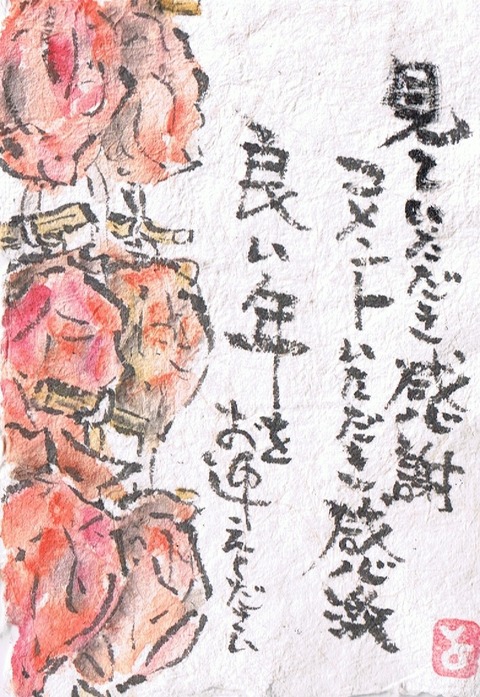 見ていただき感謝
コメントいただき感激
良い年を
お迎えください